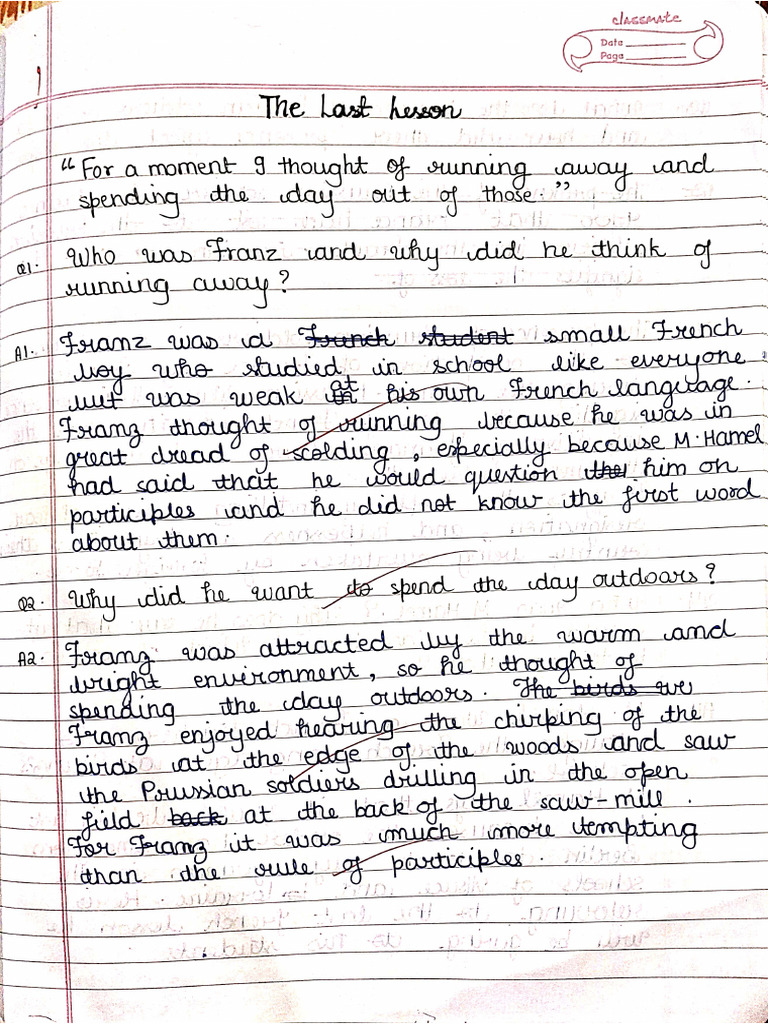 classmate
Date
Page
The Last Lesson
"For a moment I thought of running away and
spending the day out of those."
Q1. Who was Franz and why did he think of
running away?
A1. Franz was a French student small French
boy who studied in school like everyone
but was weak at in his own French language.
Franz thought of running because he was in
great dread of scolding, especially because M. Hamel
had said that he would question the him on
participles and he did not know the first word
about them.
Q2. Why did he want to spend the day outdoars?
A2. Franz was attracted by the warm and
bright environment, so he thought of
spending the day outdoors. The birds we
Franz enjoyed hearing the chirping of the
birds at the edge of the woods and saw
the Prussian soldiers drilling in the open
field back at the back of the saw-mill.
For Franz it was much more tempting
than the rule of participles.